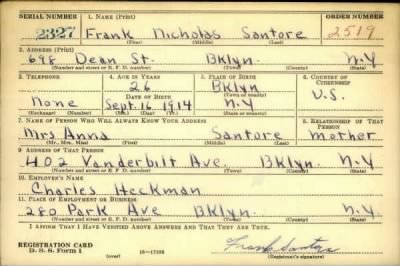 SERIAL NUMBER 1. NAME (Print) ORDER NUMBER
2327 Frank Nicholas Santore 2519
(First) (Middle) (Last)
2. ADDRESS (Print)
698 Dean St. Bklyn. N.Y
(Number and street or R. F. D. number) (Town) (County) (State)
3. TELEPHONE 4. AGE IN YEARS 5. PLACE OF BIRTH 6. COUNTRY OF CITIZENSHIP
26 Bklyn
DATE OF BIRTH (Town or county)
None Sept. 16 1914 N.Y U.S.
(Exchange) (Number) (Mo.) (Day) (Yr.) (State or country)
7. NAME OF PERSON WHO WILL ALWAYS KNOW YOUR ADDRESS 8. RELATIONSHIP OF THAT PERSON
Mrs Anna Santore Mother
(Mr., Mrs., Miss) (First) (Middle) (Last)
9. ADDRESS OF THAT PERSON
402 Vanderbilt Ave. Bklyn N-Y
(Number and street or R. F. D. number) (Town) (County) (State)
10. EMPLOYER'S NAME
Charles Heckman
11. PLACE OF EMPLOYMENT OR BUSINESS
280 Park Ave Bklyn. N-Y
(Number and street or R. F. D. number) (Town) (County) (State)
I AFFIRM THAT I HAVE VERIFIED ABOVE ANSWERS AND THAT THEY ARE TRUE.
REGISTRATION CARD
D. S. S. Form 1 (over) Frank Santore
(Registrant's signature)